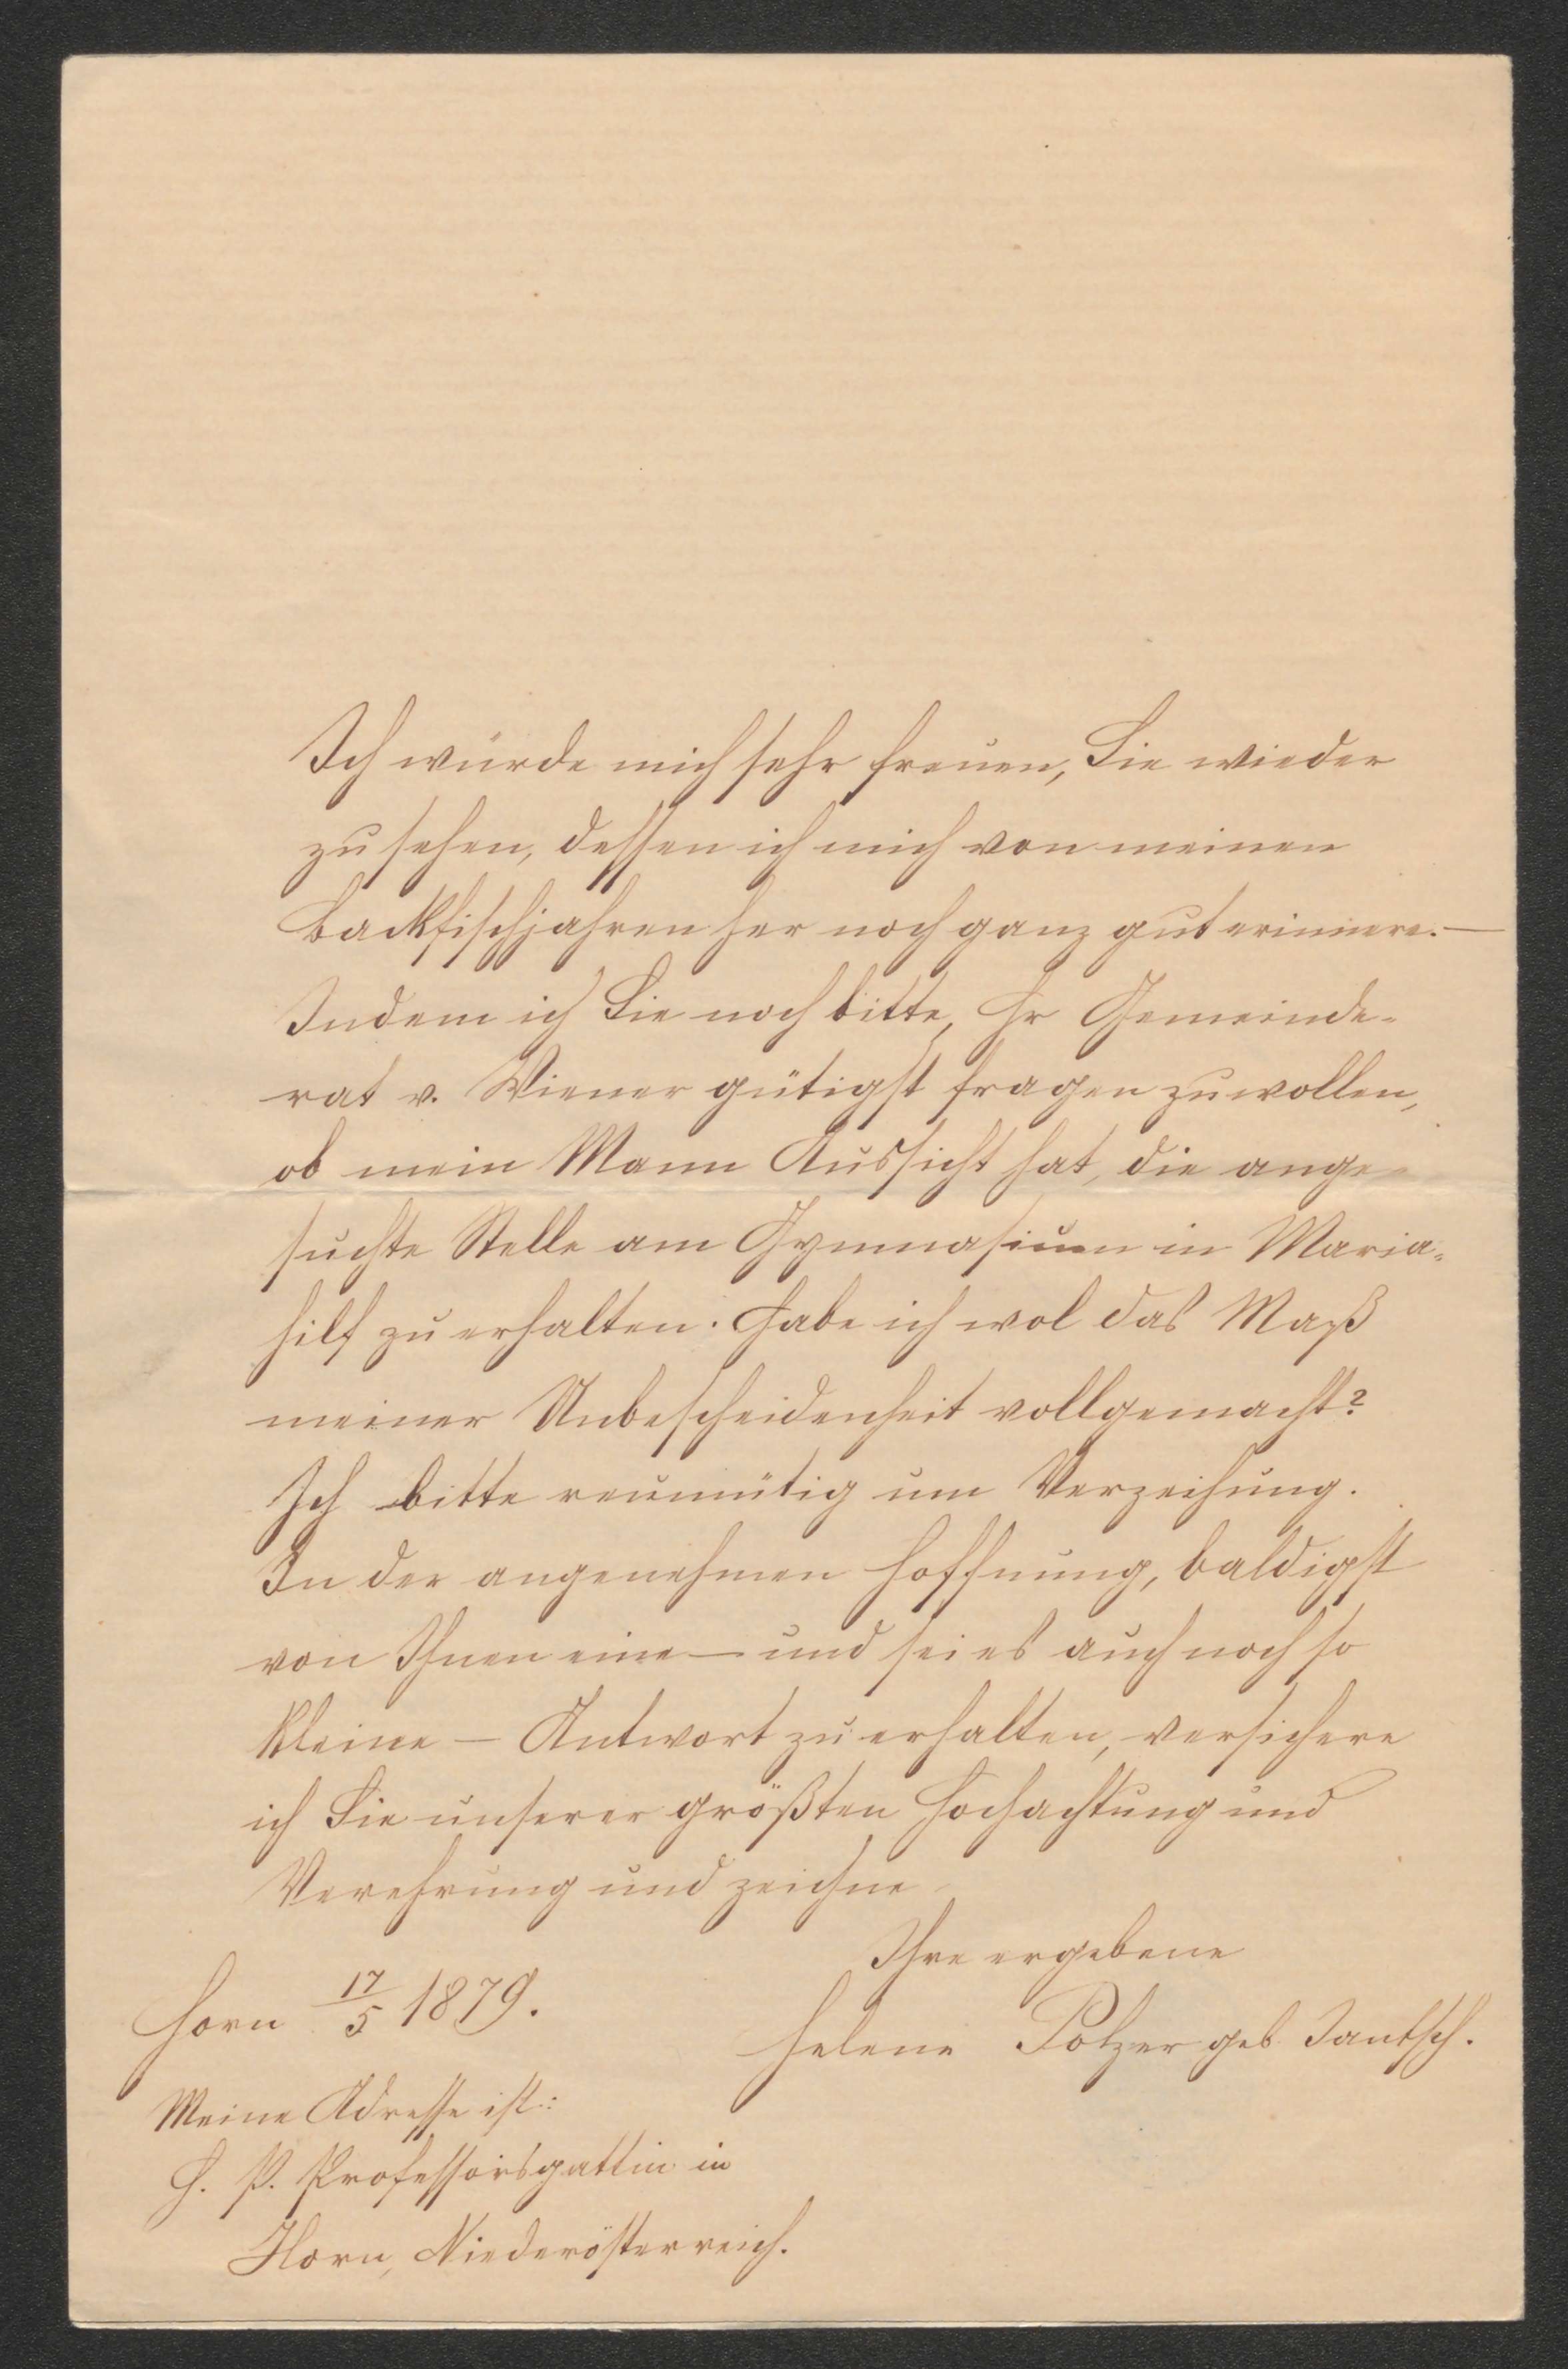 Ich würde mich sehr freuen, Sie wieder
zu sehen, dessen ich mich von meinen
Backfischjahren her noch ganz gut erinnere.—
Indem ich Sie noch bitte, Hr Gemeinde-
rat v. Wiener gütigst fragen zu wollen,
ob mein Mann Aussicht hat, die ange-
suchte Stelle am Gymnasium in Maria-
hilf zu erhalten. Habe ich wol das Maß
meiner Unbescheidenheit vollgemacht?
Ich bitte reumütig um Verzeihung.
In der angenehmen Hoffnung, baldigst
von Ihnen eine — und sei es auch noch so
kleine — Antwort zu erhalten, versichere
ich Sie unserer größten Hochachtung und
Verehrung und zeichne
Ihre ergebene
Helene Polzer geb. Jantsch.
Horn 17/5 1879.
Meine Adresse ist:
H. P. Professorsgattin in
Horn, Niederösterreich.